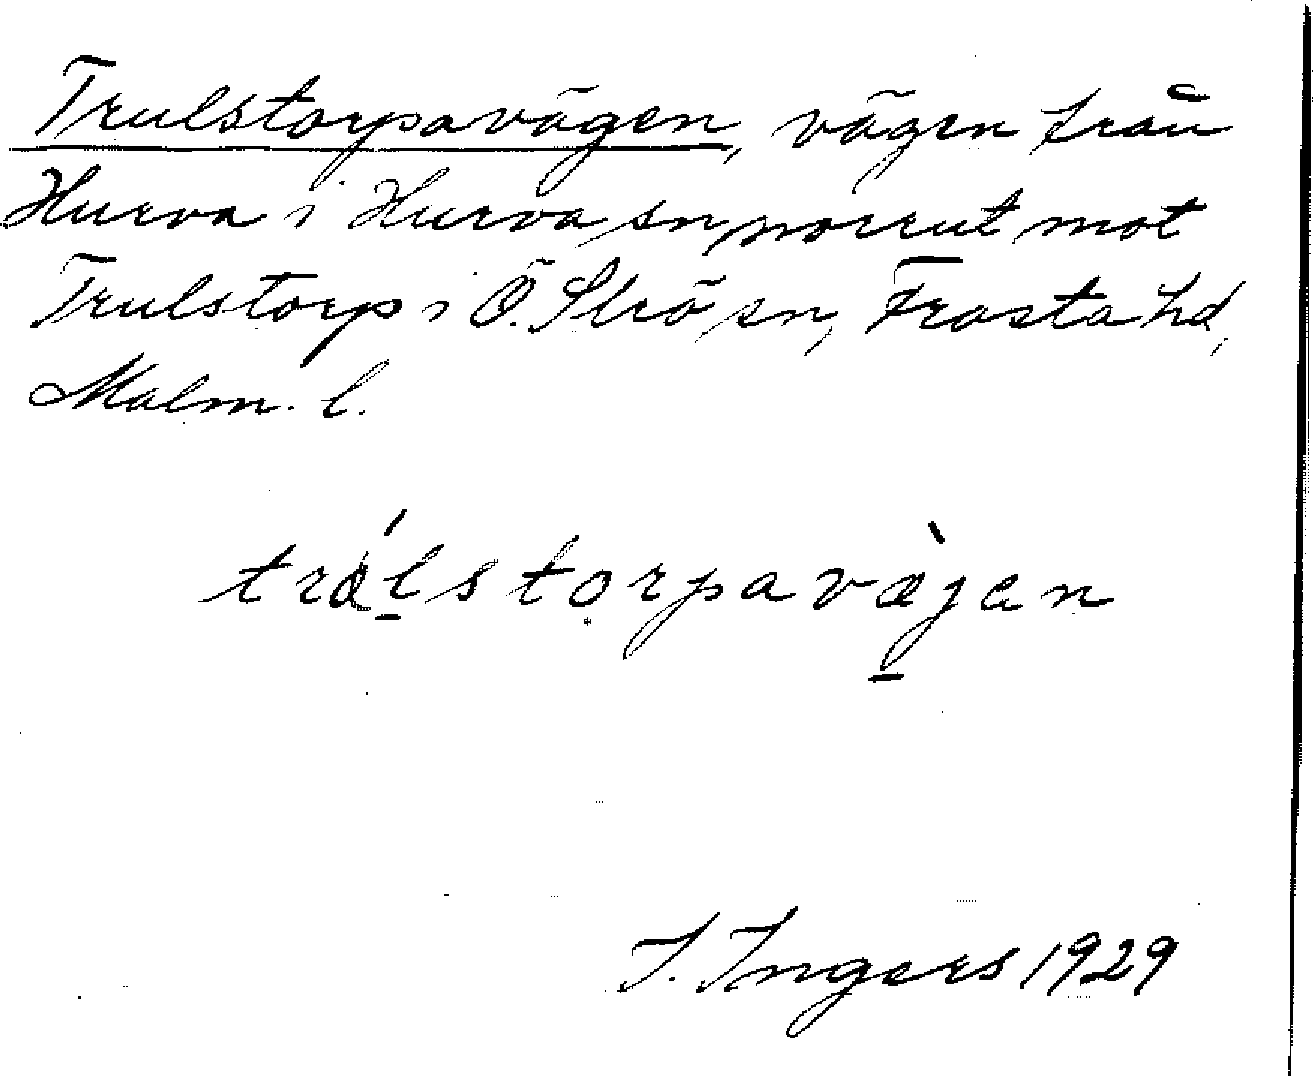 Trulstorpavägen, vägen från
Hurva i Hurva sn, norrut mot
Trulstorp i Ö. Strö sn, Frosta hd,
Malm. l.
trɷ́lstorpavæ̀jen
I. Ingers 1929